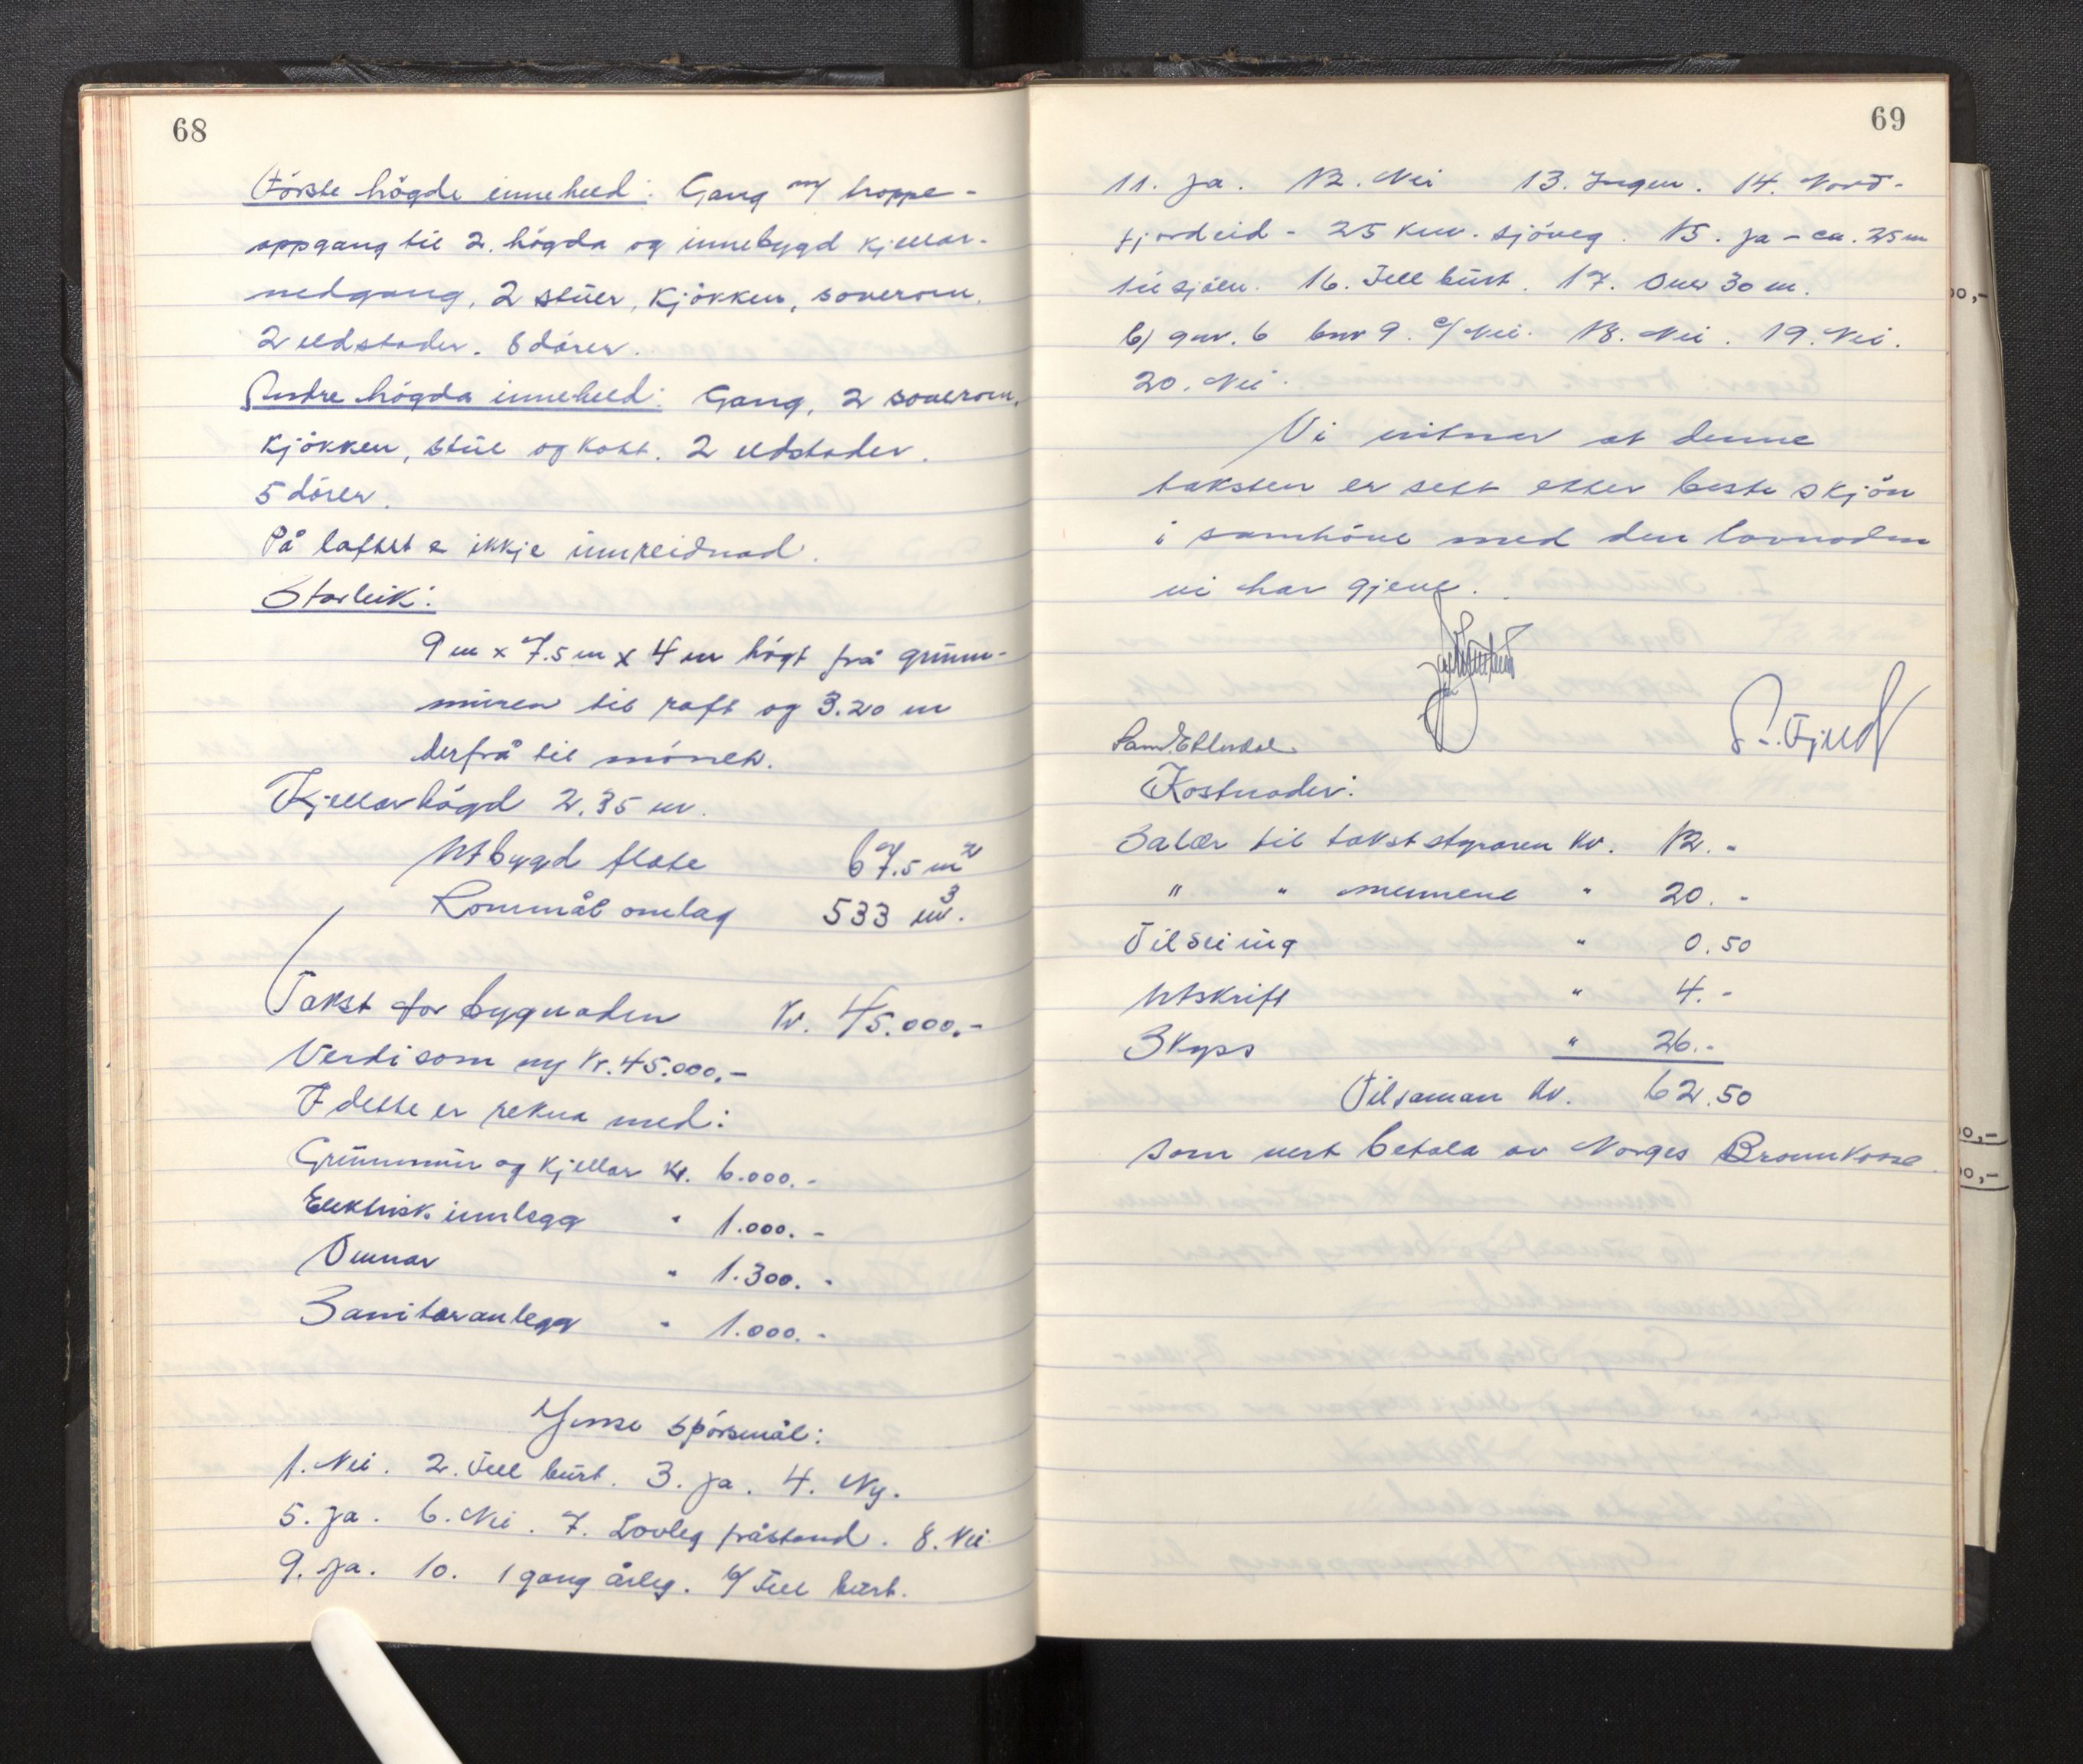 68
Förste högde inneheld: Gang m/ troppe-
oppgang til 2. högda og innebygd kjellar-
nedgang, 2 stuer, kjökken, soverom.
2 eldstader. 8 dörer.
Andre högda inneheld: Gang, 2 soverom,
kjökken, stue og kott. 2 eldstader.
5 dörer.
På loftet e ikkje innreidnad.
Storleik:
9 m x 7.5 m x 4 m högt frå grunn-
muren til raft og 3.20 m
derfrå til mönet.
Kjellarhögd 2.35 m.
Utbygd flate 67.5 m²
Rommål omlag 533 m³.
Takst for bygnaden Kr. 45.000.-
Verdi som ny Kr. 45.000,-
I dette er rekna med:
Grunnmur og kjellar Kr. 6.000.-
Elektrisk innlegg " 1.000.-
Omnar " 1.300.-
Sanitæranlegg " 1.000.-
Ymse spörsmål:
1. Nei. 2. Tell burt. 3. Ja. 4. Ny.
5. Ja. 6. Nei. 7. Lovleg fråstand. 8. Nei
9. Ja. 10. 1 gang årleg. b/ Tell burt.
69
11. Ja. 12. Nei 13. Ingen. 14. Nord-
fjordeid - 25 km. sjöveg. 15. Ja - ca. 25 m
til sjöen. 16. Tell burt. 17. Over 30 m.
b) gnr. 6 bnr 9. c/ Nei. 18. Nei. 19. Nei.
20. Nei.
Vi vitnar at denne
taksten er sett etter beste skjön
i samhöve med den lovnaden
vi har gjeve.
Kostnader:
Salær til takststyraren Kr. 12.-
" " mennene " 20.-
Tilseiing " 0.50
Utskrift " 4.-
Skyss " 26.-
Tilsaman Kr. 62.50
som vert betala av Norges Brannkasse.